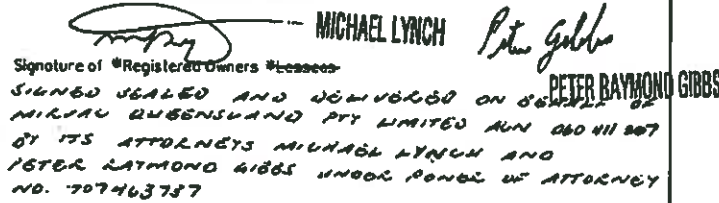 MICHAEL LYNCH
Peter Gibbs
Signature of *Registered Owners *Lessees
PETER RAYMOND GIBBS
SIGNED SEALED AND DELIVERED ON BEHALF OF
MIRVAC QUEENSLAND PTY LIMITED ACN 060 411 207
BY ITS ATTORNEYS MICHAEL LYNCH AND
PETER RAYMOND GIBBS UNDER POWER OF ATTORNEY
NO. 707463737